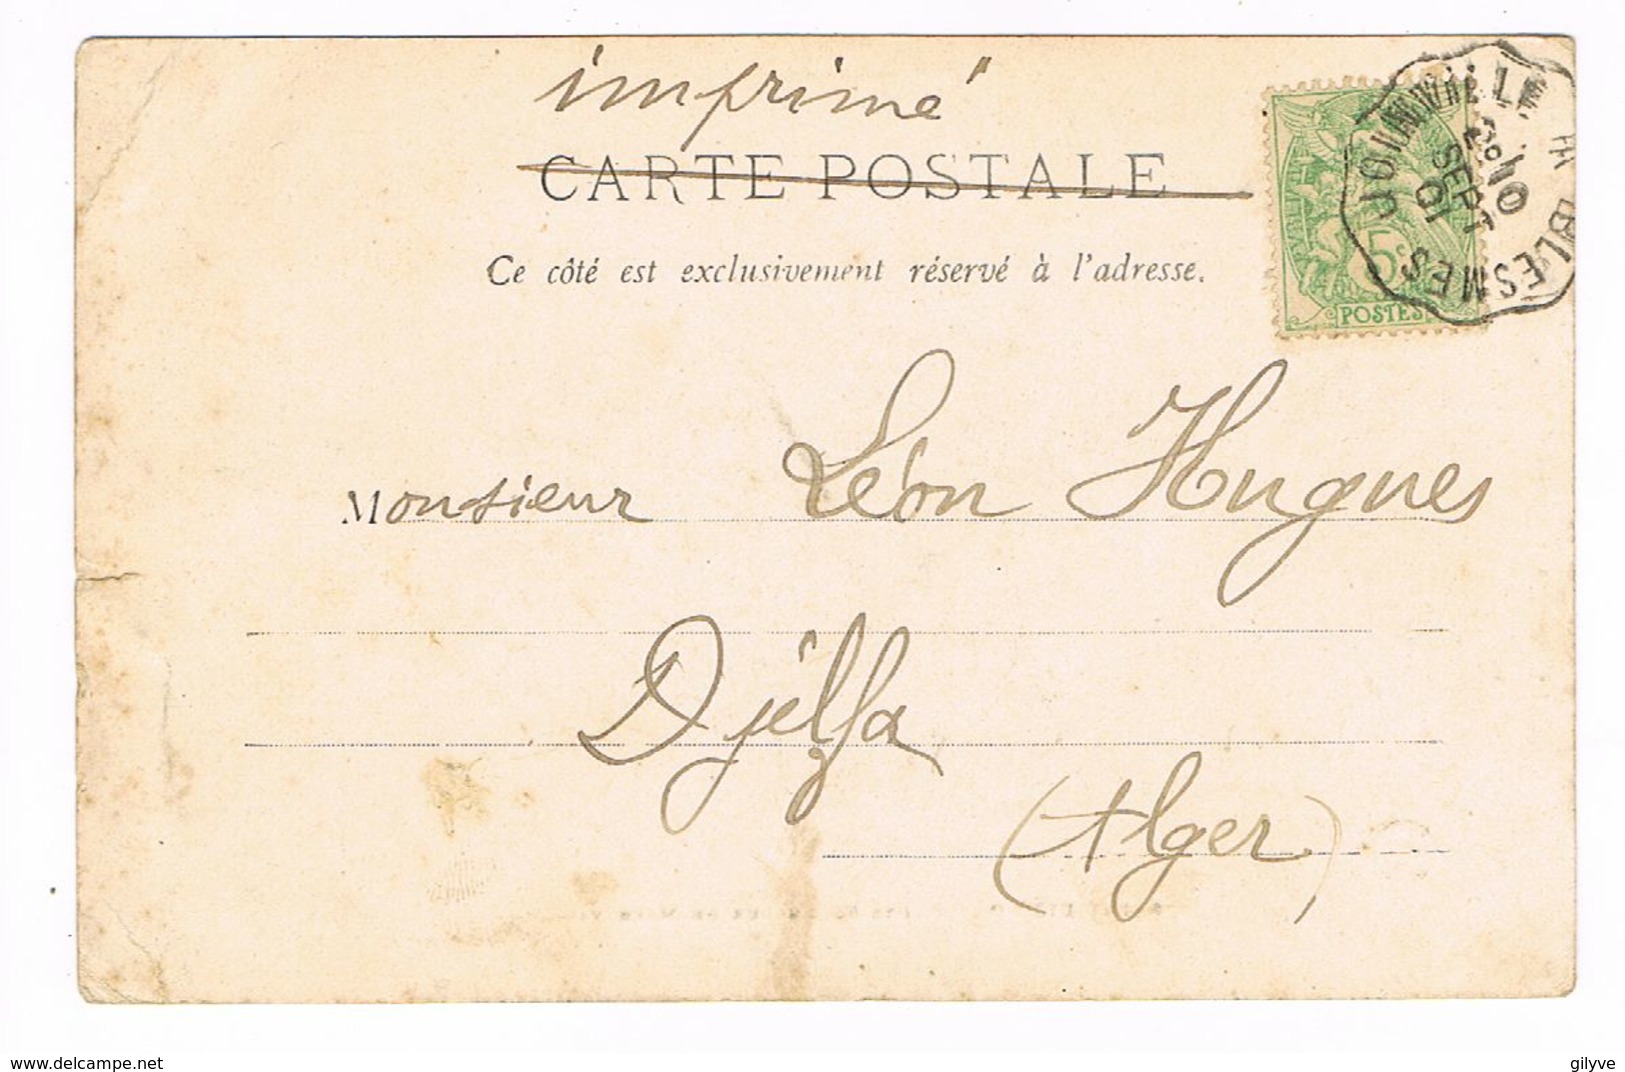 imprimé
CARTE POSTALE
Ce côté est exclusivement réservé à l'adresse.
5c
POSTES
BLESMES
2e 10
SEPT
01
Monsieur Léon Hugues
Djélfa
(Alger)
delcampe.net
gilyve